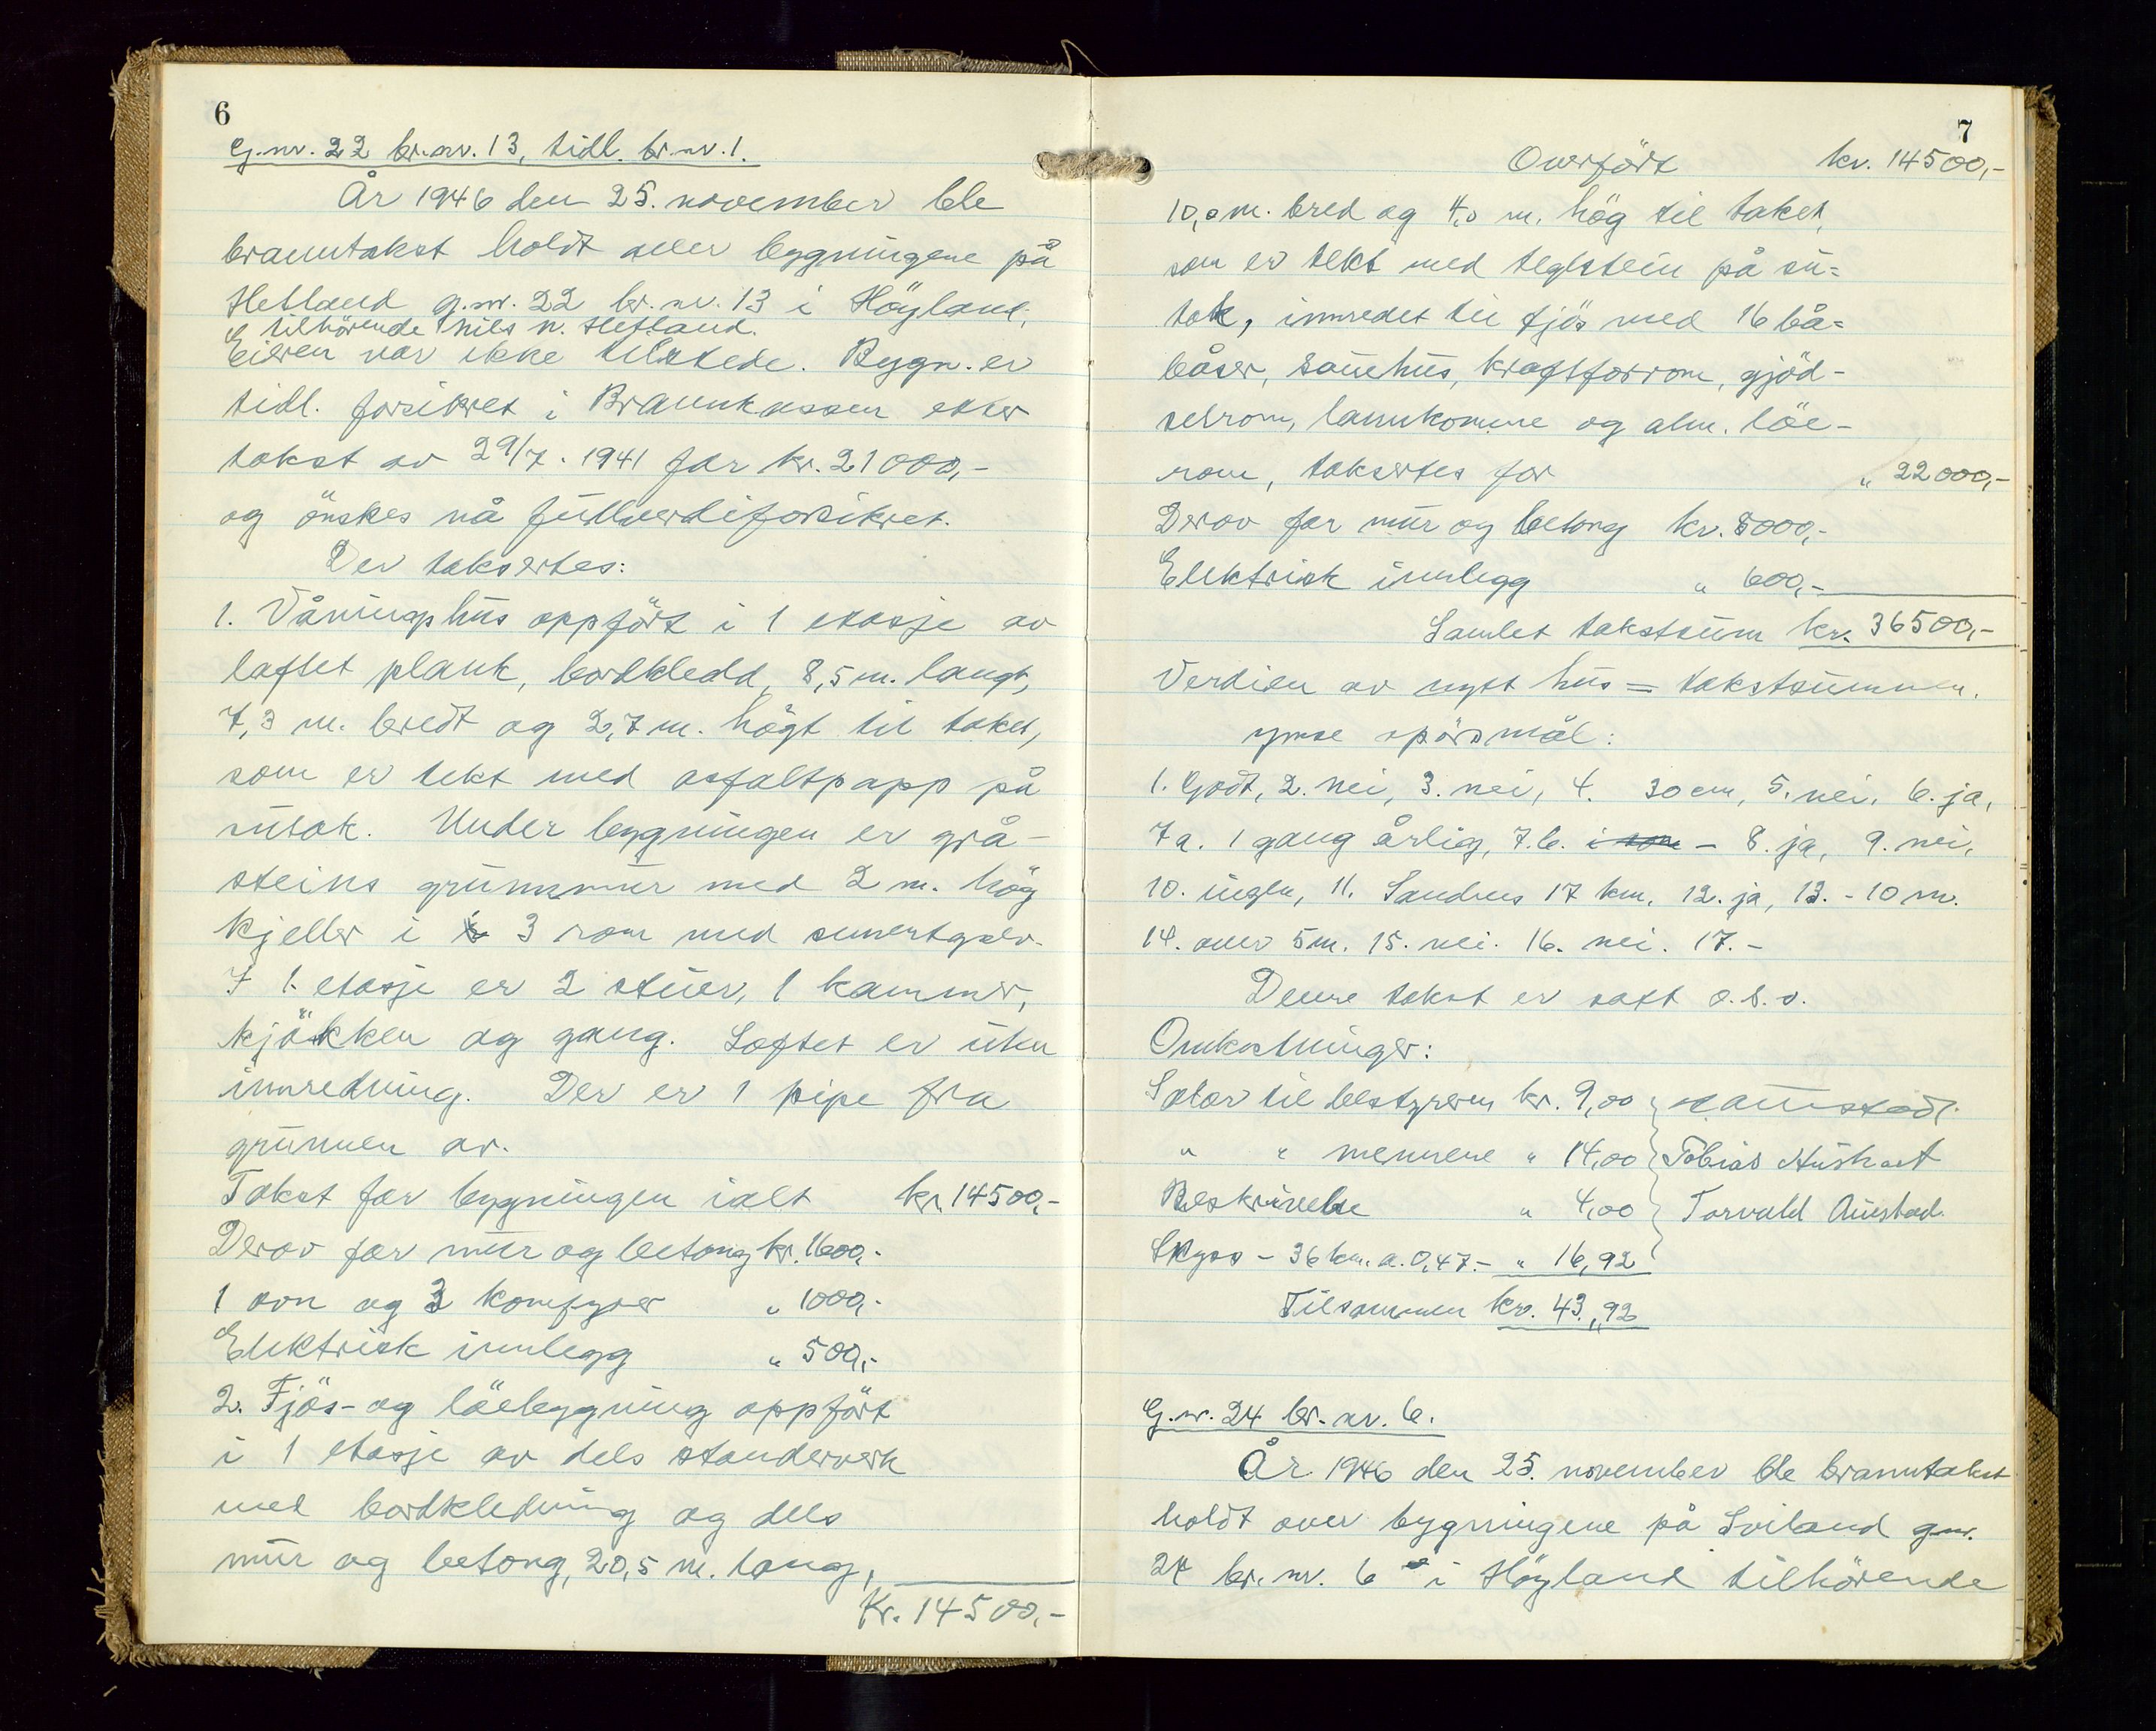 6
G.nr. 22 br.nr. 13, tidl. br.nr. 1.
År 1946 den 25. november ble
branntakst holdt over bygningene på
Hetland g.nr. 22 br.nr. 13 i Höyland,
tilhörende Nils N. Hetland.
Eieren var ikke tilstede. Bygn. er
tidl. forsikret i Brannkassen etter
takst av 29/7. 1941 for kr. 21000,-
og önskes nå fullverdiforsikret.
Der taksertes:
1. Våningshus oppfört i 1 etasje av
laftet plank, bordkledd, 8,5 m. langt,
7,3 m. bredt og 2,7 m. högt til taket,
som er tekt med asfaltpapp på
sutak. Under bygningen er grå-
steins grunnmur med 2 m. hög
kjeller i 3 rom med sementgolv.
I 1. etasje er 2 stuer, 1 kammer,
kjökken og gang. Loftet er uten
innredning. Der er 1 pipe fra
grunnen av.
Takst for bygningen ialt kr. 14500,-
Derav for mur og betong kr. 1600,-
1 ovn og 3 komfyrer " 1000,-
Elektrisk innlegg " 500,-
2. Fjös- og löebygning oppfört
i 1 etasje av dels standerverk
med bordkledning og dels
mur og betong, 20,5 m. lang,
Kr. 14500,-
7
Overfört kr. 14500,-
10,0 m. bred og 4,0 m. hög til taket,
som er tekt med teglstein på su=
tak, innredet til fjös med 16 bå=
båser, sauehus, kraftforrom, gjöd-
selrom, lannkomme og alm. löe-
rom, taksertes for " 22000,-
Derav for mur og betong kr. 8000,-
Elektrisk innlegg " 600,-
Samlet takstsum kr. 36500,-
Verdien av nytt hus = takstsummen.
Ymse spörsmål:
1. Godt, 2. nei, 3. nei, 4. 30 cm, 5. nei, 6. ja,
7a. 1 gang årlig, 7.b. - 8. ja, 9. nei,
10. ingen, 11. Sandnes 17 km. 12. ja, 13. - 10 m.
14. over 5 m. 15. nei. 16. nei. 17. -
Denne takst er satt o.s.v.
Omkostninger:
Salær til bestyreren kr. 9,00
" " mennene " 14,00 Tobias Hushart
Beskrivelse " 4,00 Torvald Austad.
Skyss - 36 km. a. 0,47.- " 16,92
Tilsammen kr. 43,92
G.nr. 24 br.nr. 6.
År 1946 den 25. november ble branntakst
holdt over bygningene på Sviland gnr.
24 br.nr. 6 i Höyland tilhörende